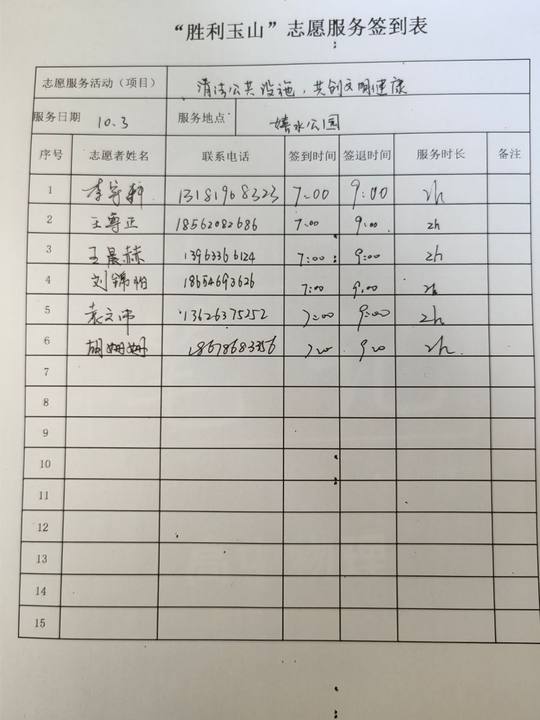 “胜利玉山”志愿服务签到表
志愿服务活动（项目） 清洁公共设施，共创文明健康
服务日期 10.3 服务地点 嬉水公园
序号 志愿者姓名 联系电话 签到时间 签退时间 服务时长 备注
1 李宇轩 13181968323 7:00 9:00 2h
2 王尊正 18562082686 7:00 9:00 2h
3 王晨赫 13963366124 7:00 9:00 2h
4 刘锦怡 18654693626 7:00 9:00 2h
5 袁文沛 13626375252 7:00 9:00 2h
6 胡姗姗 18678683356 7:00 9:00 2h
7
8
9
10
11
12
13
14
15